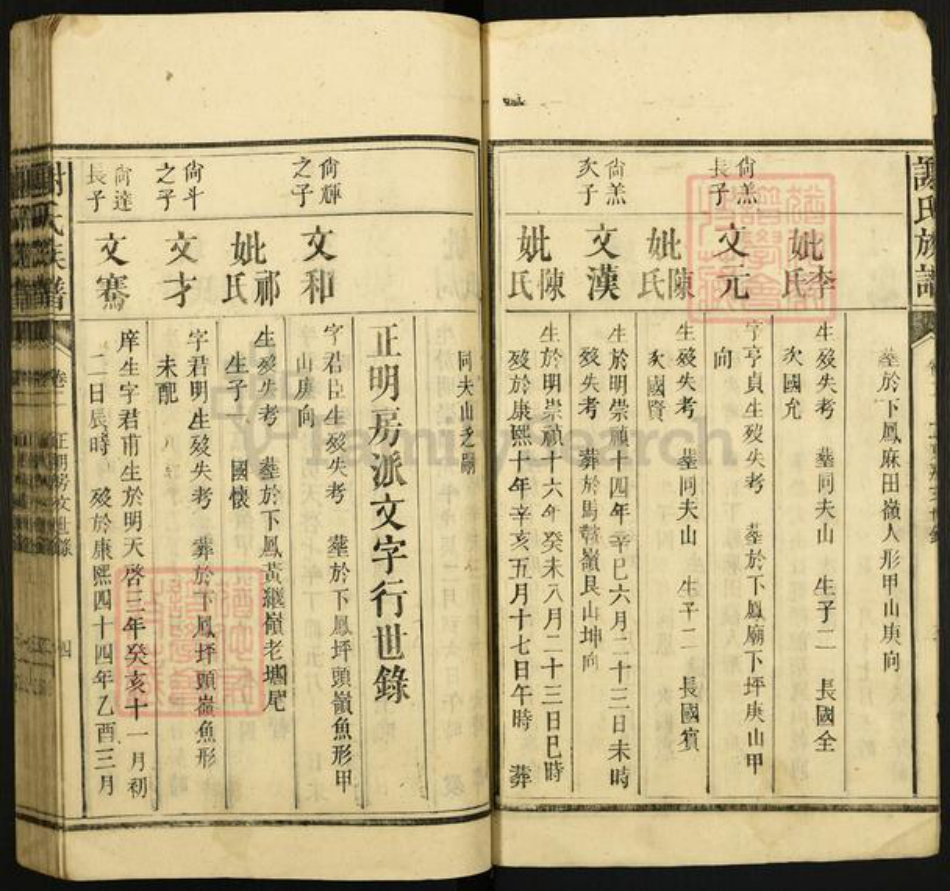 謝氏族譜
塟於下鳳麻田嶺人形甲山庚向
妣李氏
生殁失考 塟同夫山 生子二 長國全
次國允
尙羔長子
文元
字亨貞生殁失考 塟於下鳳廟下坪庚山甲
向
妣陳氏
生殁失考 塟同夫山 生子二 長國賓
次國賢
尙羔次子
文漢
生於明崇禎十四年辛巳六月二十三日未時
殁失考 葬於馬鞍嶺艮山坤向
妣陳氏
生於明崇禎十六年癸未八月二十三日巳時
殁於康熙十年辛亥五月十七日午時 葬
同夫山之
正明房派文字行世錄
尙輝之子
文和
字君臣生殁失考 塟於下鳳坪頭嶺魚形甲
山庚向
妣祁氏
生殁失考 塟於下鳳黃繼嶺老壋尾
生子一 國懷
尙斗之子
文才
字君明生殁失考 葬於下鳳坪頭嶺魚形
未配
尙達長子
文騫
庠生字君甫生於明天啓三年癸亥十一月初
二日辰時 殁於康熙四十四年乙酉三月
謝氏族譜
卷二
正明房文世錄
四
FamilySearch